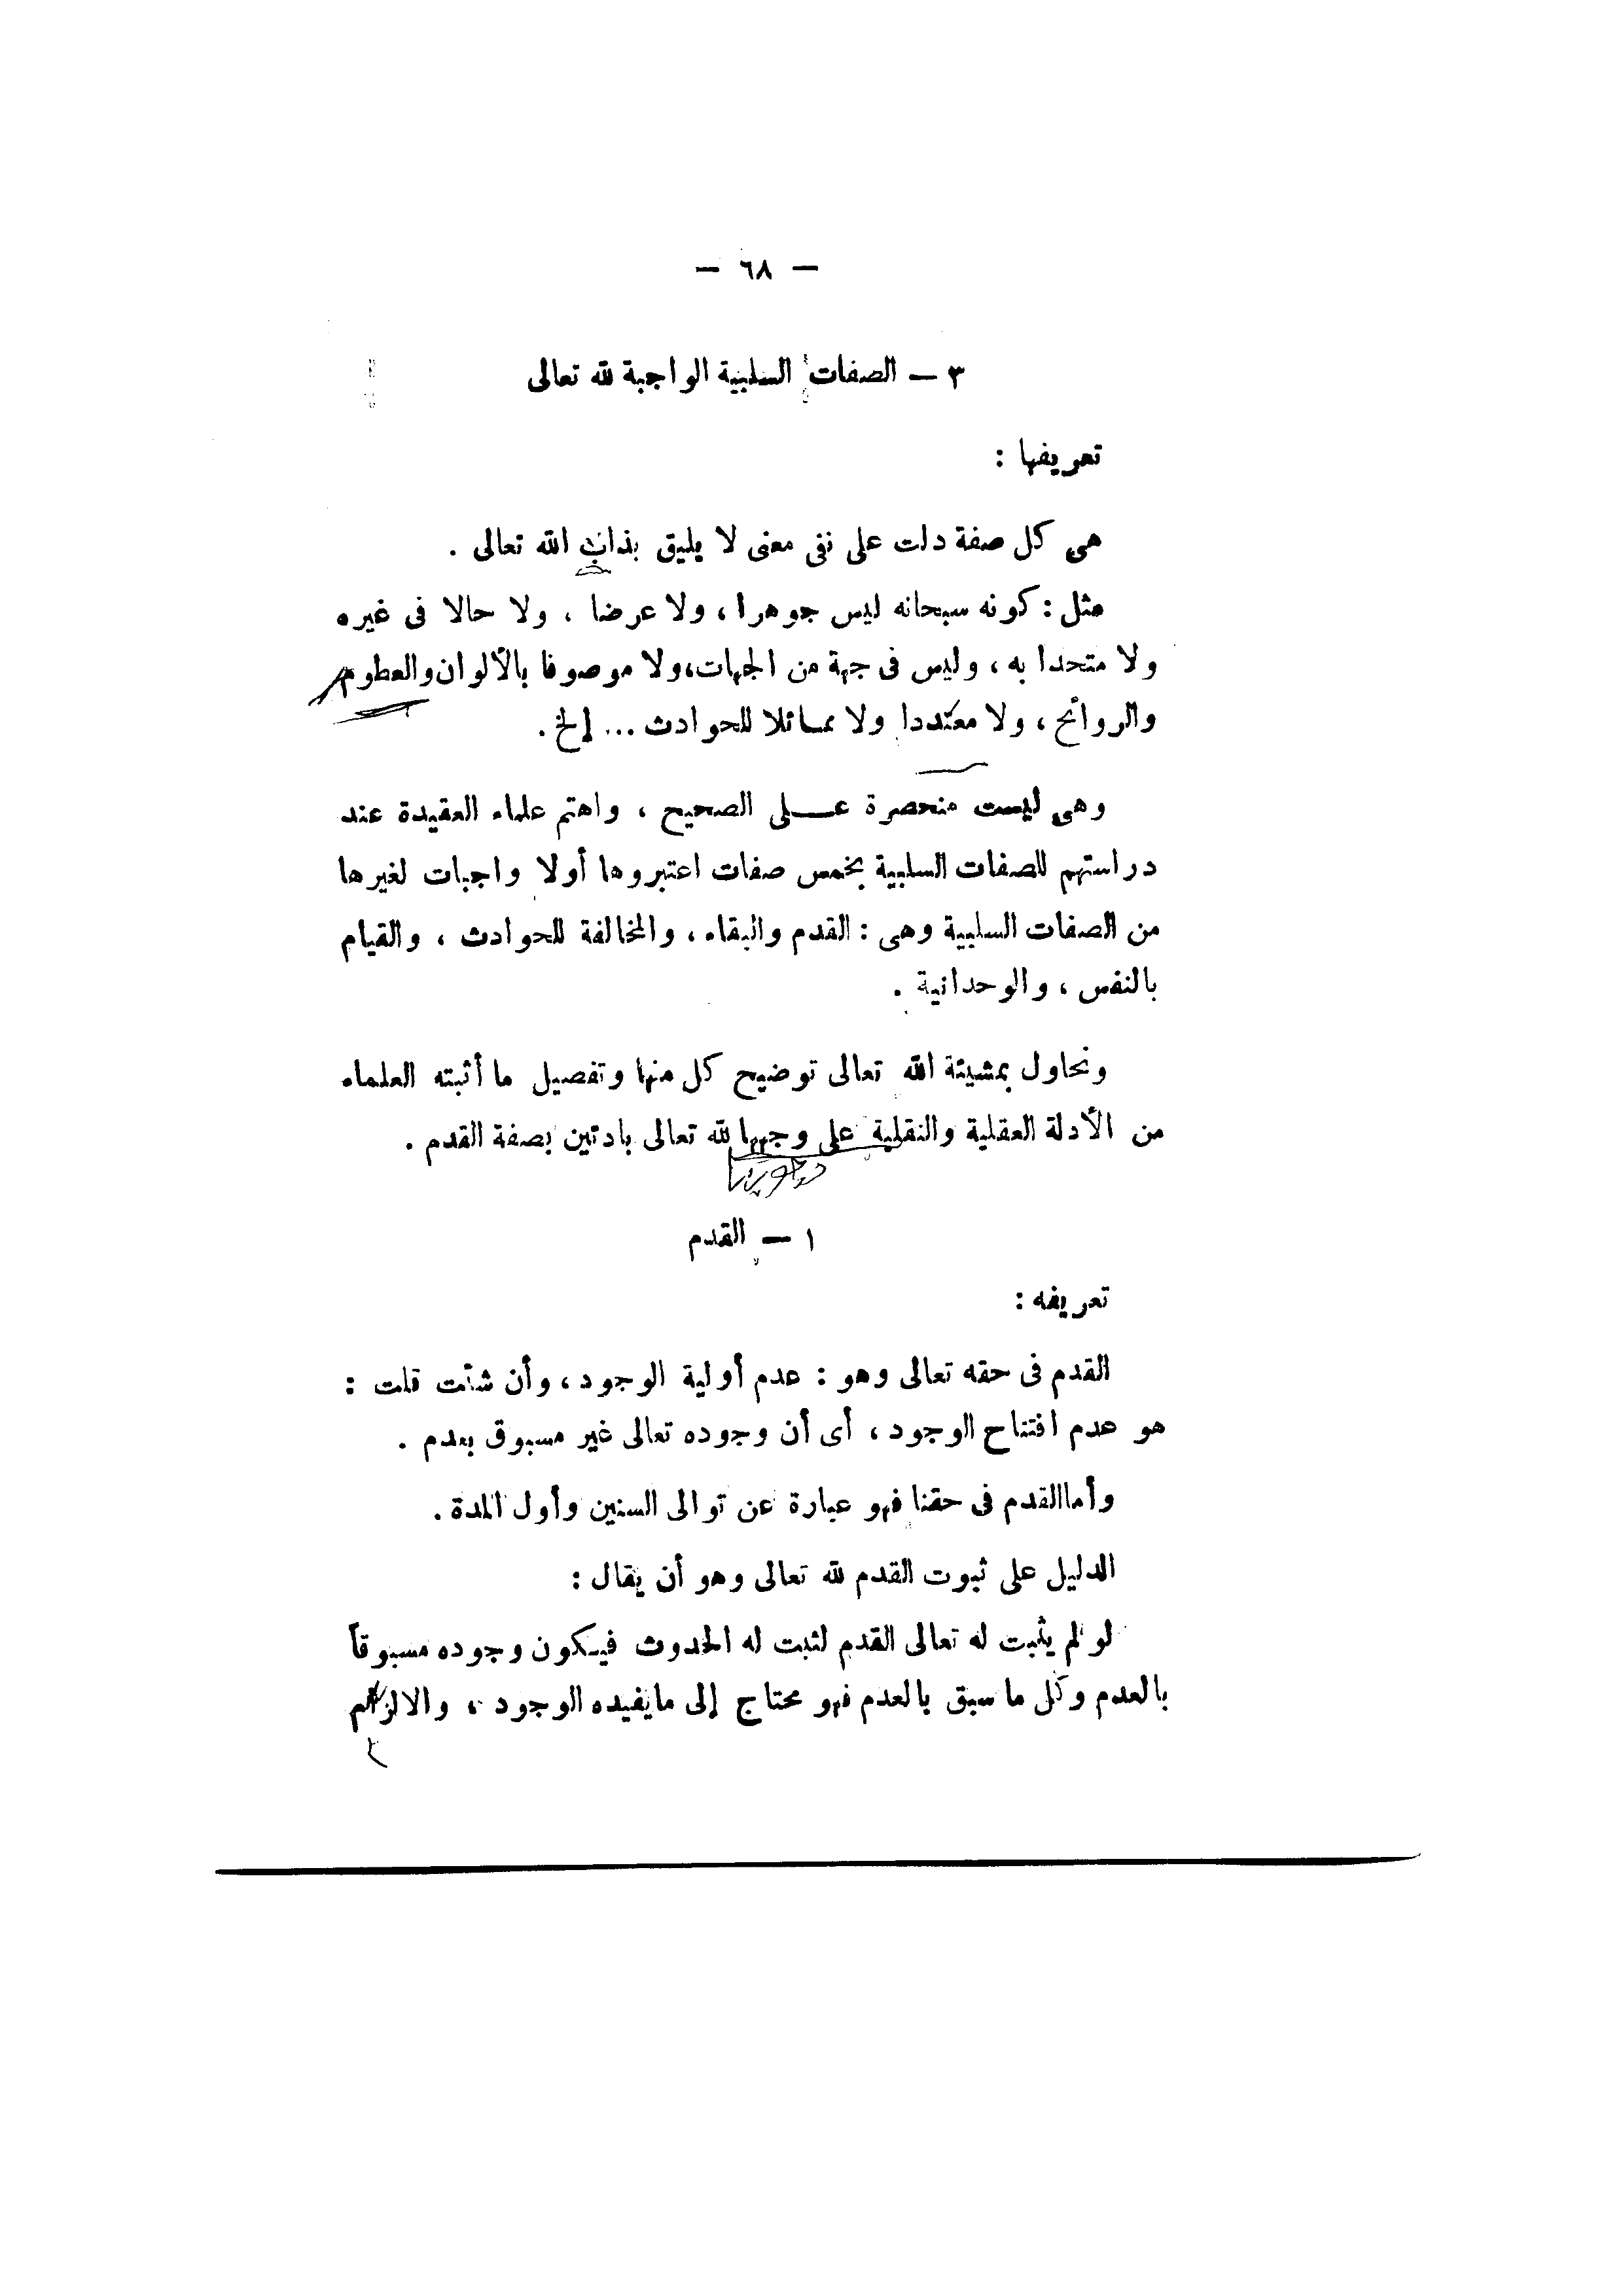 — ٦٨ —
٣ — الصفات السلبية الواجبة لله تعالى
تعريفها :
هى كل صفة دلت على نفى معنى لا يليق بذات الله تعالى .
مثل : كونه سبحانه ليس جوهرا ، ولا عرضا ، ولا حالا فى غيره
ولا متحدا به ، وليس فى جهة من الجهات ، ولا موصوفا بالألوان والعطوم
والروائح ، ولا معتددا ولا مماثلا للحوادث ... إلخ .
وهى ليست منحصرة على الصحيح ، واهتم علماء العقيدة عند
دراستهم للصفات السلبية بخمس صفات اعتبروها أولا واجبات لغيرها
من الصفات السلبية وهى : القدم والبقاء ، والمخالفة للحوادث ، والقيام
بالنفس ، والوحدانية .
ونحاول بمشيئة الله تعالى توضيح كل منها وتفصيل ما أثبته العلماء
من الأدلة العقلية والنقلية على وجهها لله تعالى بادئين بصفة القدم .
١ — القدم
تعريفه :
القدم فى حقه تعالى وهو : عدم أولية الوجود ، وأن شئت قلت :
هو عدم افتتاح الوجود ، أى أن وجوده تعالى غير مسبوق بعدم .
وأما القدم فى حقنا فهو عبارة عن توالى السنين وأول المدة .
الدليل على ثبوت القدم لله تعالى وهو أن يقال :
لو لم يثبت له تعالى القدم لثبت له الحدوث فيكون وجوده مسبوقاً
بالعدم وكل ما سبق بالعدم فهو محتاج إلى ما يفيده الوجود ، والا لزم